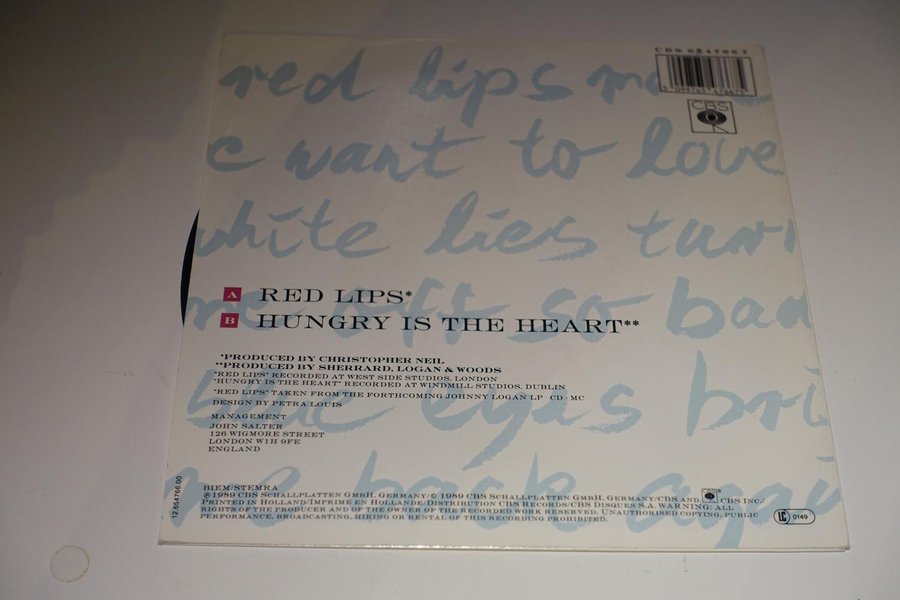 CBS 654766 7
red lips ma
CBS
e want to love
white lies turn
me off so bad
A RED LIPS*
B HUNGRY IS THE HEART**
*PRODUCED BY CHRISTOPHER NEIL
**PRODUCED BY SHERRARD, LOGAN & WOODS
"RED LIPS" RECORDED AT WEST SIDE STUDIOS, LONDON
"HUNGRY IS THE HEART" RECORDED AT WINDMILL STUDIOS, DUBLIN
"RED LIPS" TAKEN FROM THE FORTHCOMING JOHNNY LOGAN LP · CD · MC
DESIGN BY PETRA LOUIS
blue eyes bri
MANAGEMENT
JOHN SALTER
126 WIGMORE STREET
LONDON W1H 9FE
ENGLAND
me back again
BIEM/STEMRA
℗ 1989 CBS SCHALLPLATTEN GMBH, GERMANY/© 1989 CBS SCHALLPLATTEN GMBH, GERMANY/CBS AND CBS INC./
PRINTED IN HOLLAND/IMPRIMÉ EN HOLLANDE/DISTRIBUTION CBS RECORDS/CBS DISQUES S.A. WARNING: ALL
RIGHTS OF THE PRODUCER AND OF THE OWNER OF THE RECORDED WORK RESERVED. UNAUTHORISED COPYING, PUBLIC
PERFORMANCE, BROADCASTING, HIRING OR RENTAL OF THIS RECORDING PROHIBITED.
LC 0149
12.654766.00